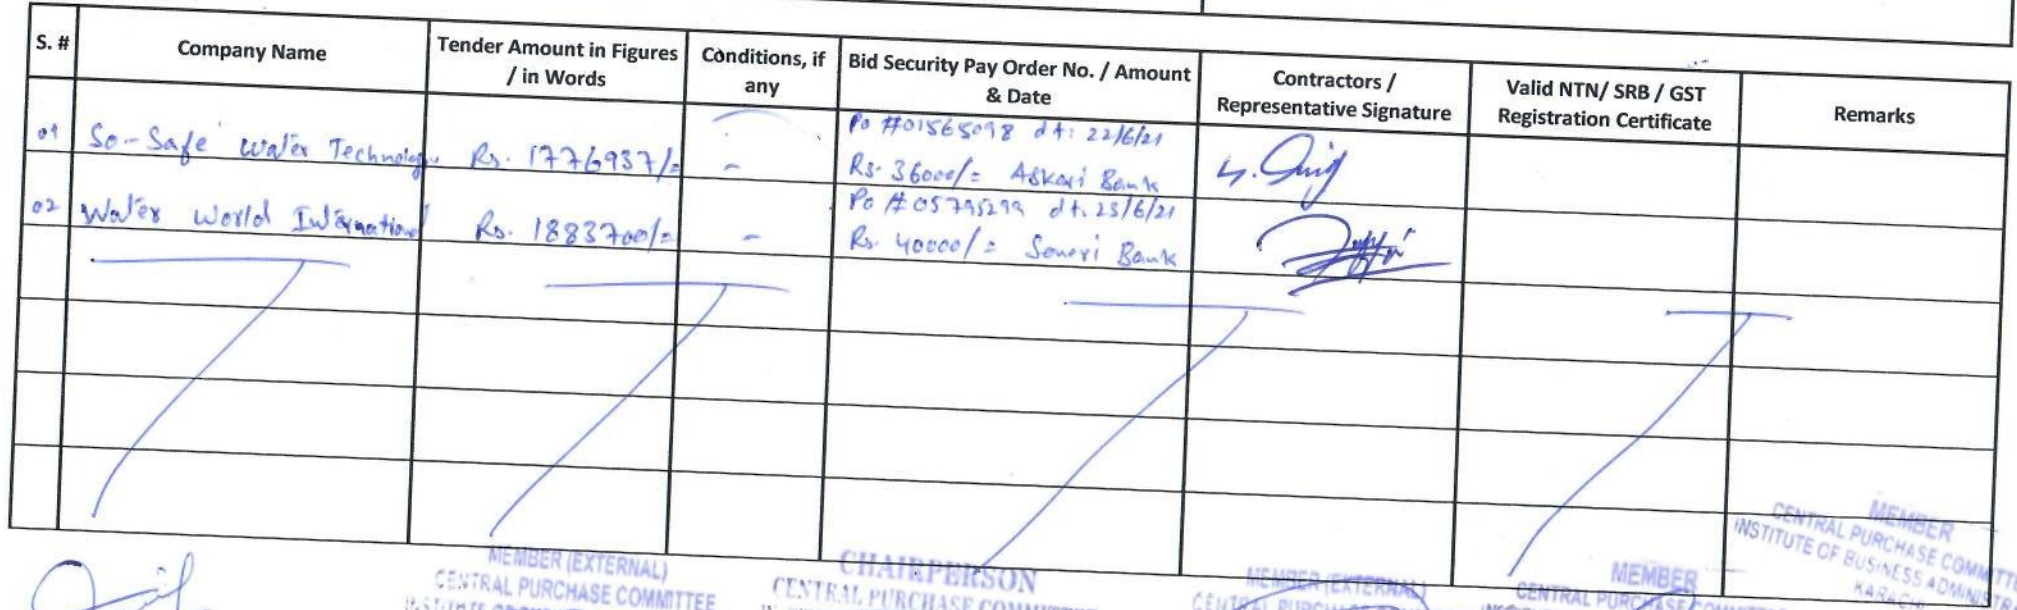 S. #
Company Name
Tender Amount in Figures
/ in Words
Conditions, if
any
Bid Security Pay Order No. / Amount
& Date
Contractors /
Representative Signature
Valid NTN/ SRB / GST
Registration Certificate
Remarks
01 So-Safe Water Technology Rs. 1776937/= -
Po #01565098 dt: 22/6/21
Rs. 36000/= Askari Bank
02 Water World International Rs. 1883700/= -
Po # 05795299 dt. 23/6/21
Rs. 40000/= Soneri Bank
MEMBER (EXTERNAL)
CENTRAL PURCHASE COMMITTEE
CHAIRPERSON
CENTRAL PURCHASE COMMITTEE
MEMBER (EXTERNAL)
CENTRAL PURCHASE
MEMBER
CENTRAL PURCHASE COMMITTEE
MEMBER
CENTRAL PURCHASE COMMITTE
INSTITUTE OF BUSINESS ADMINISTRA
KARACHI